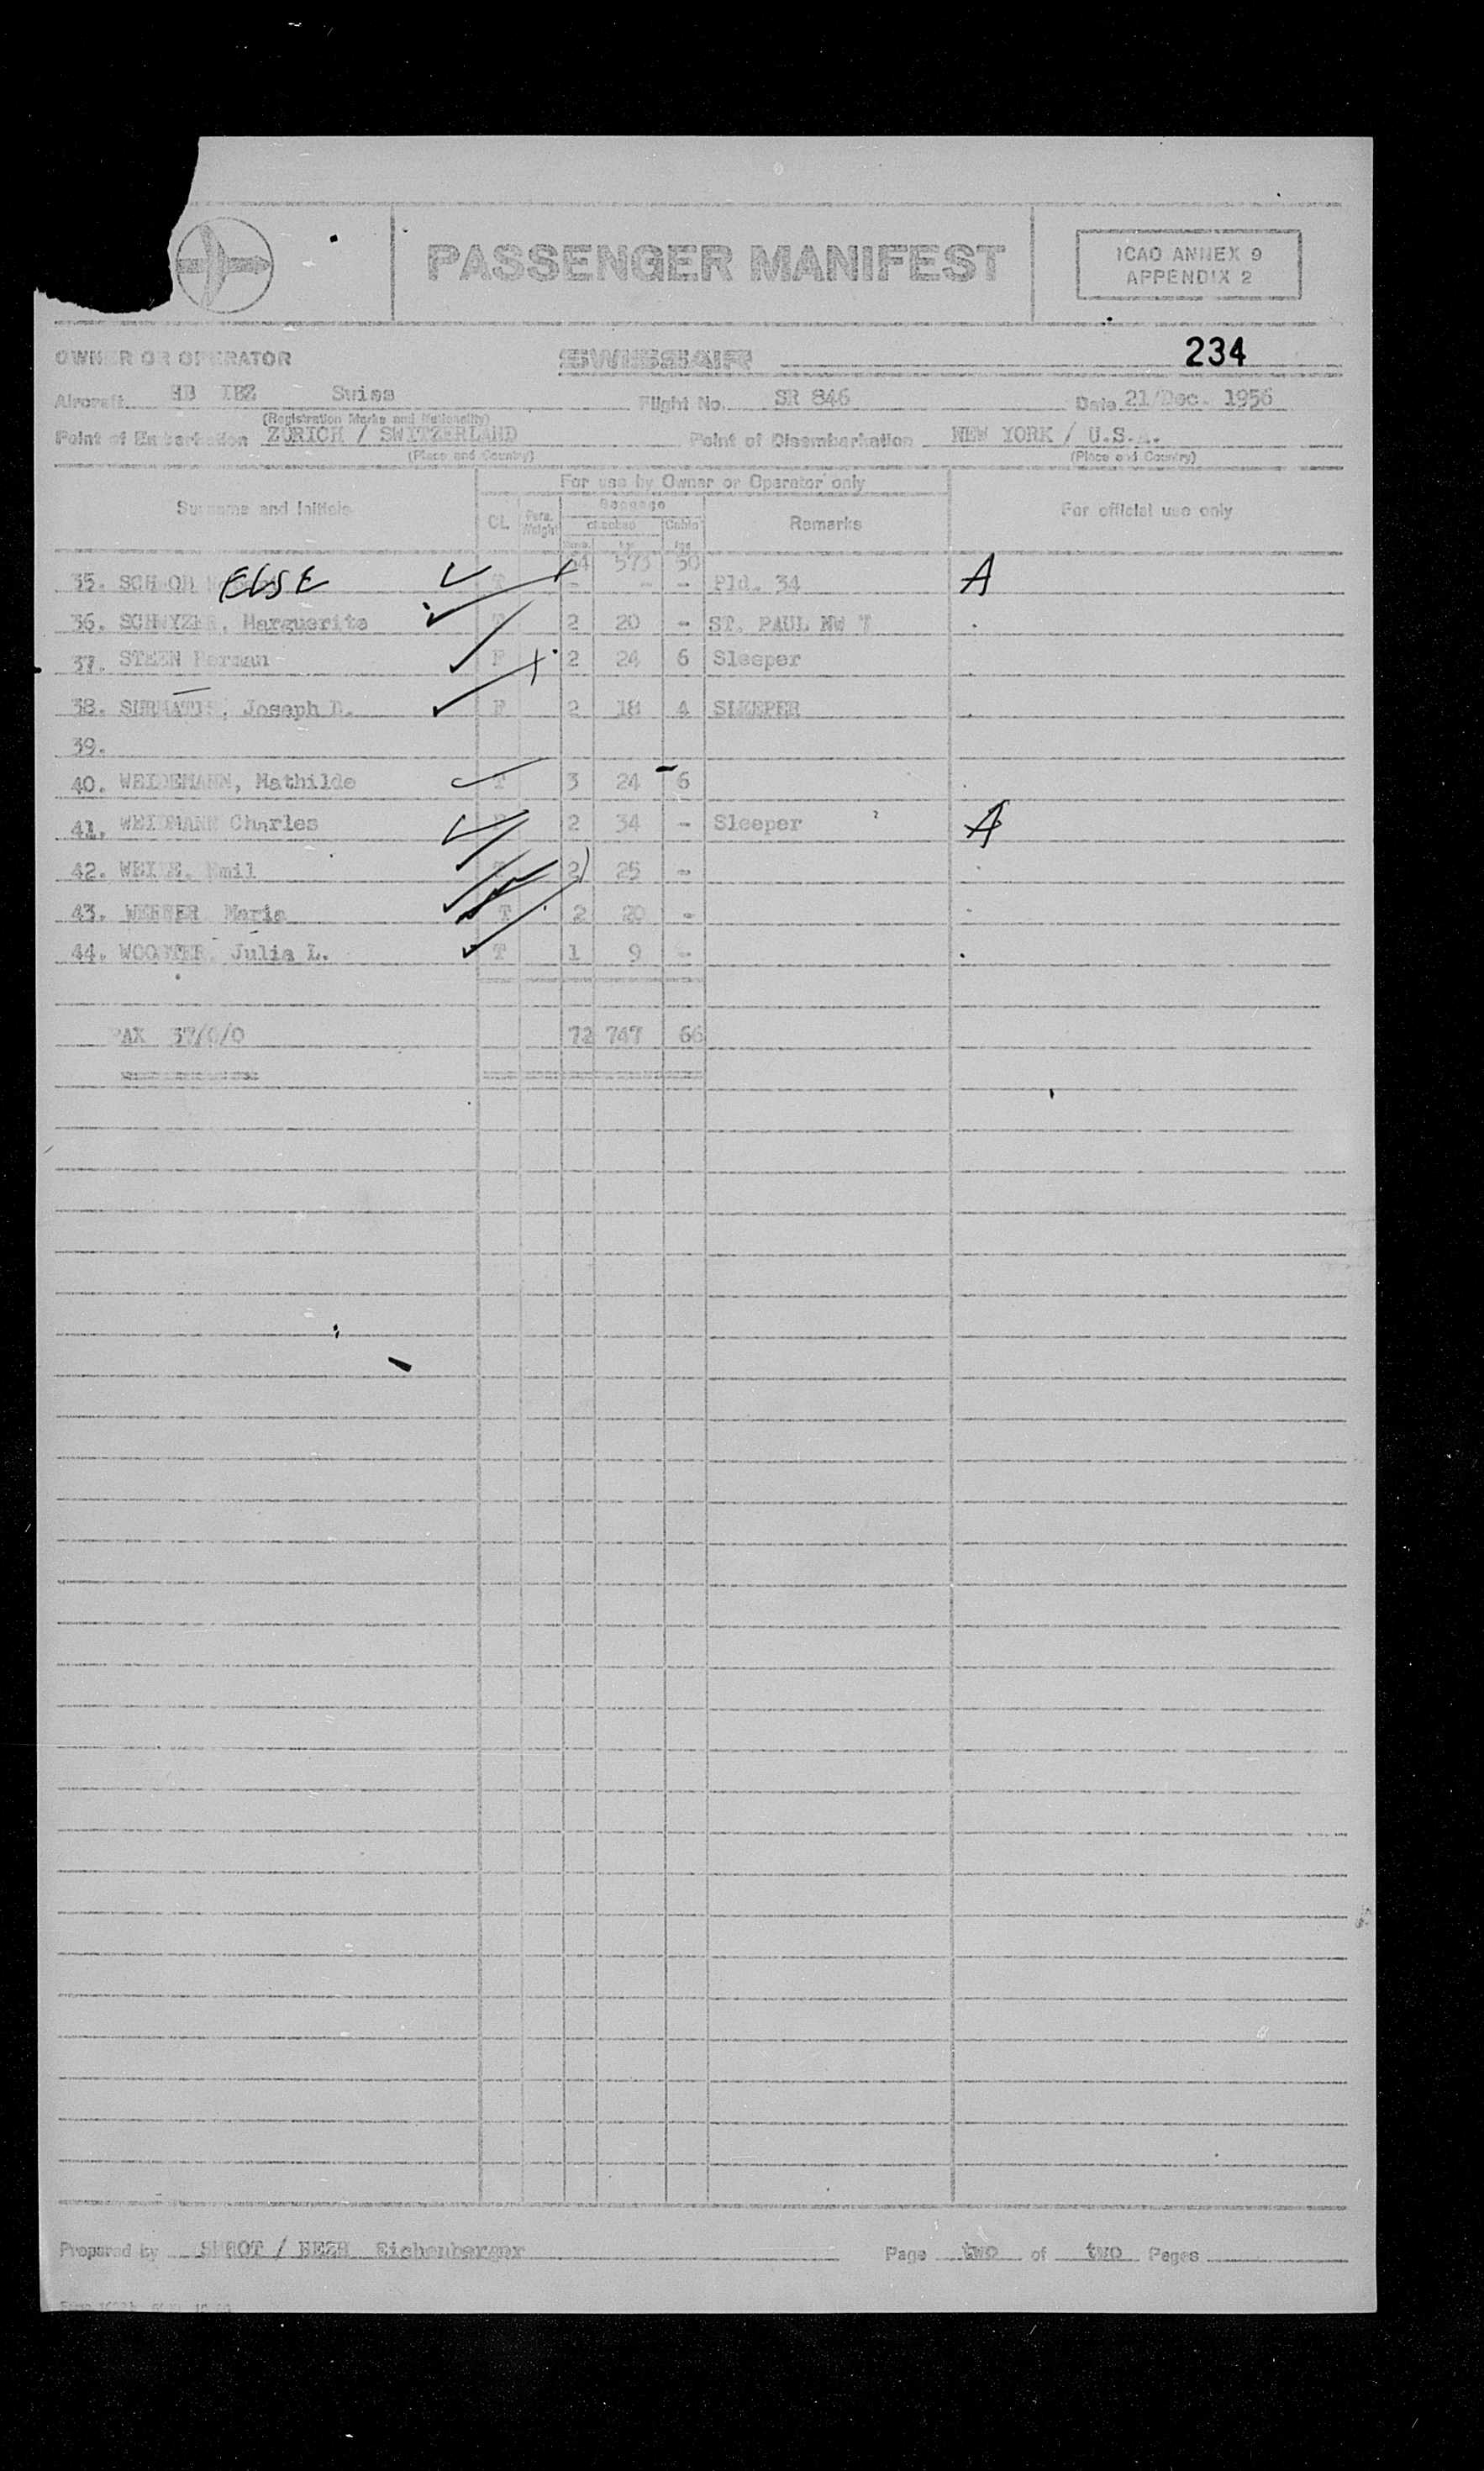 PASSENGER MANIFEST
ICAO ANNEX 9
APPENDIX 2
OWNER OR OPERATOR SWISSAIR 234
Aircraft HB IBZ Suiss Flight No. SR 846 Date 21/Dec. 1956
(Registration Marks and Nationality)
Point of Embarkation ZURICH / SWITZERLAND Point of Disembarkation NEW YORK / U.S.A.
(Place and Country) (Place and Country)
For use by Owner or Operator only
Surname and Initials CL Pers. Weight Baggage checked Cabin Remarks For official use only
kgs
64 573 50
35. ELSE T - - - Pld. 34 A
36. SCHWYZER, Marguerite 2 20 - ST. PAUL NW T
37. STEEN Herman F 2 24 6 Sleeper
38. Joseph D. F 2 18 4 SLEEPER
39.
40. WEIDEMANN, Mathilde T 3 24 6
41. WEIDMANN Charles 2 34 - Sleeper A
42. Emil T 2 25 -
43. WERNER Maria T 2 20 -
44. WOOSTER, Julia L. T 1 9 -
PAX 37/0/0 72 747 66
Prepared by / Eichenberger Page two of two Pages